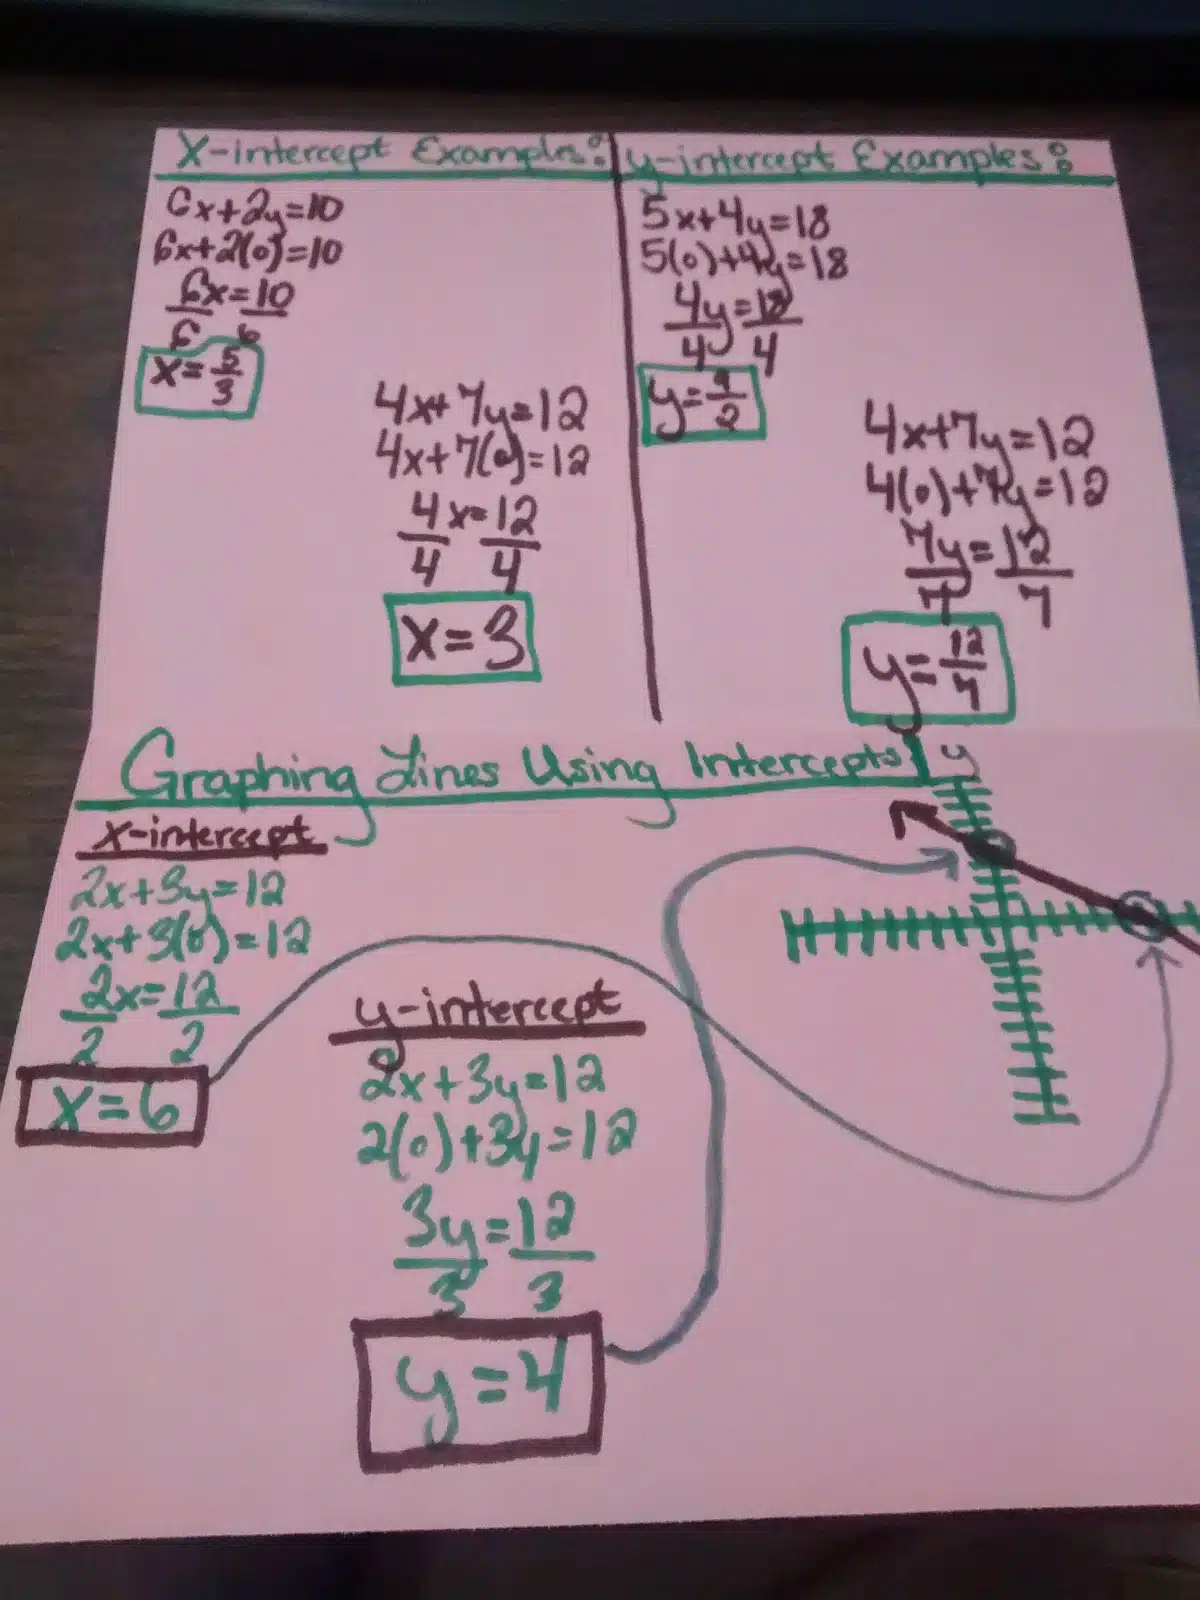 X-intercept Examples:
6x+2y=10
6x+2(0)=10
6x=10
6 6
x=5/3
4x+7y=12
4x+7(0)=12
4x=12
4 4
x=3
y-intercept Examples:
5x+4y=18
5(0)+4y=18
4y=18
4 4
y=9/2
4x+7y=12
4(0)+7y=12
7y=12
7 7
y=12/7
Graphing Lines Using Intercepts
x-intercept
2x+3y=12
2x+3(0)=12
2x=12
2 2
x=6
y-intercept
2x+3y=12
2(0)+3y=12
3y=12
3 3
y=4
y